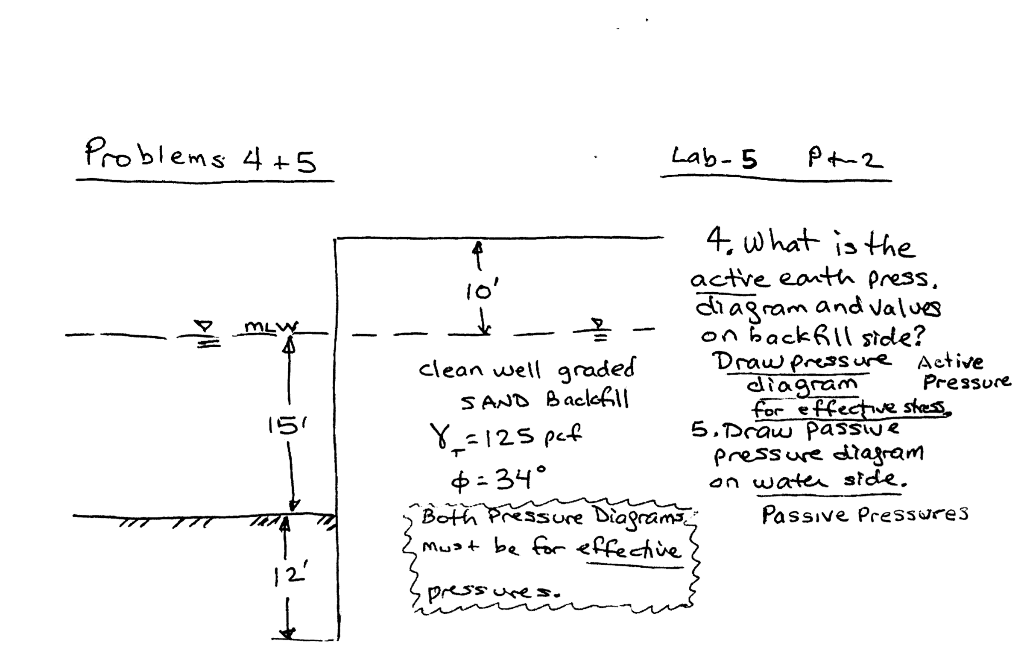 Problems 4+5
Lab-5 Pt-2
10'
MLW
15'
12'
clean well graded
SAND Backfill
γT = 125 pcf
φ = 34°
Both Pressure Diagrams
must be for effective
pressures.
4. What is the
active earth press.
diagram and values
on backfill side?
Draw pressure Active
diagram Pressure
for effective stress.
5. Draw Passive
pressure diagram
on water side.
Passive Pressures